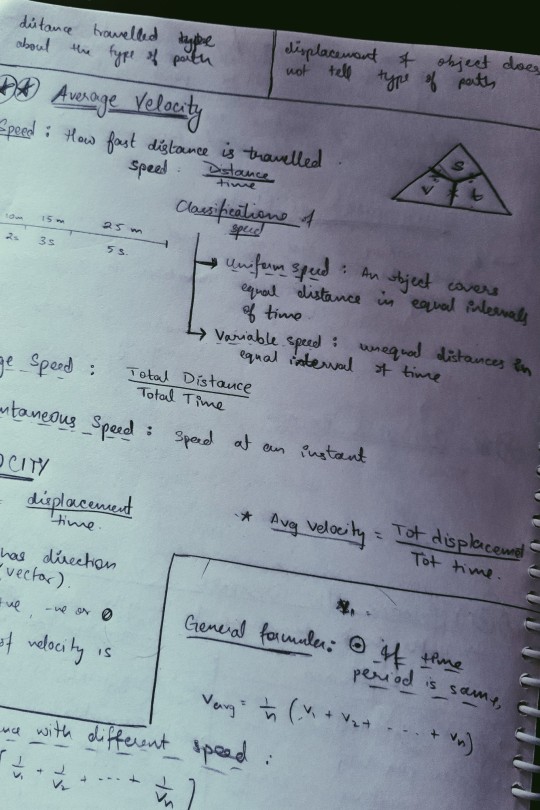 distance travelled type
about the type of path
displacement of object does
not tell type of path
Average Velocity
Speed : How fast distance is travelled
Speed . Distance
time
S
v t
Classifications of
speed
10m 15m 25m
2s 3s 5s.
Uniform speed : An object covers
equal distance in equal intervals
of time.
Variable speed : unequal distances in
equal interval of time
ge Speed : Total Distance
Total Time
ntaneous Speed : Speed at an instant
OCITY
= displacement
time.
* Avg Velocity = Tot displacemen
Tot time.
has direction
(vector).
+ve, -ve or 0
of velocity is
V1 =
General formulae: If time
period is same,
Vavg = 1/n (V1 + V2 + .... + Vn)
nce with different speed :
[ 1/V1 + 1/V2 + ... + 1/Vn ]